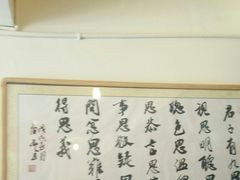 君子有九
視思明聽思
聰色思温
思恭言思
事思敬疑
問忿思難
得思義